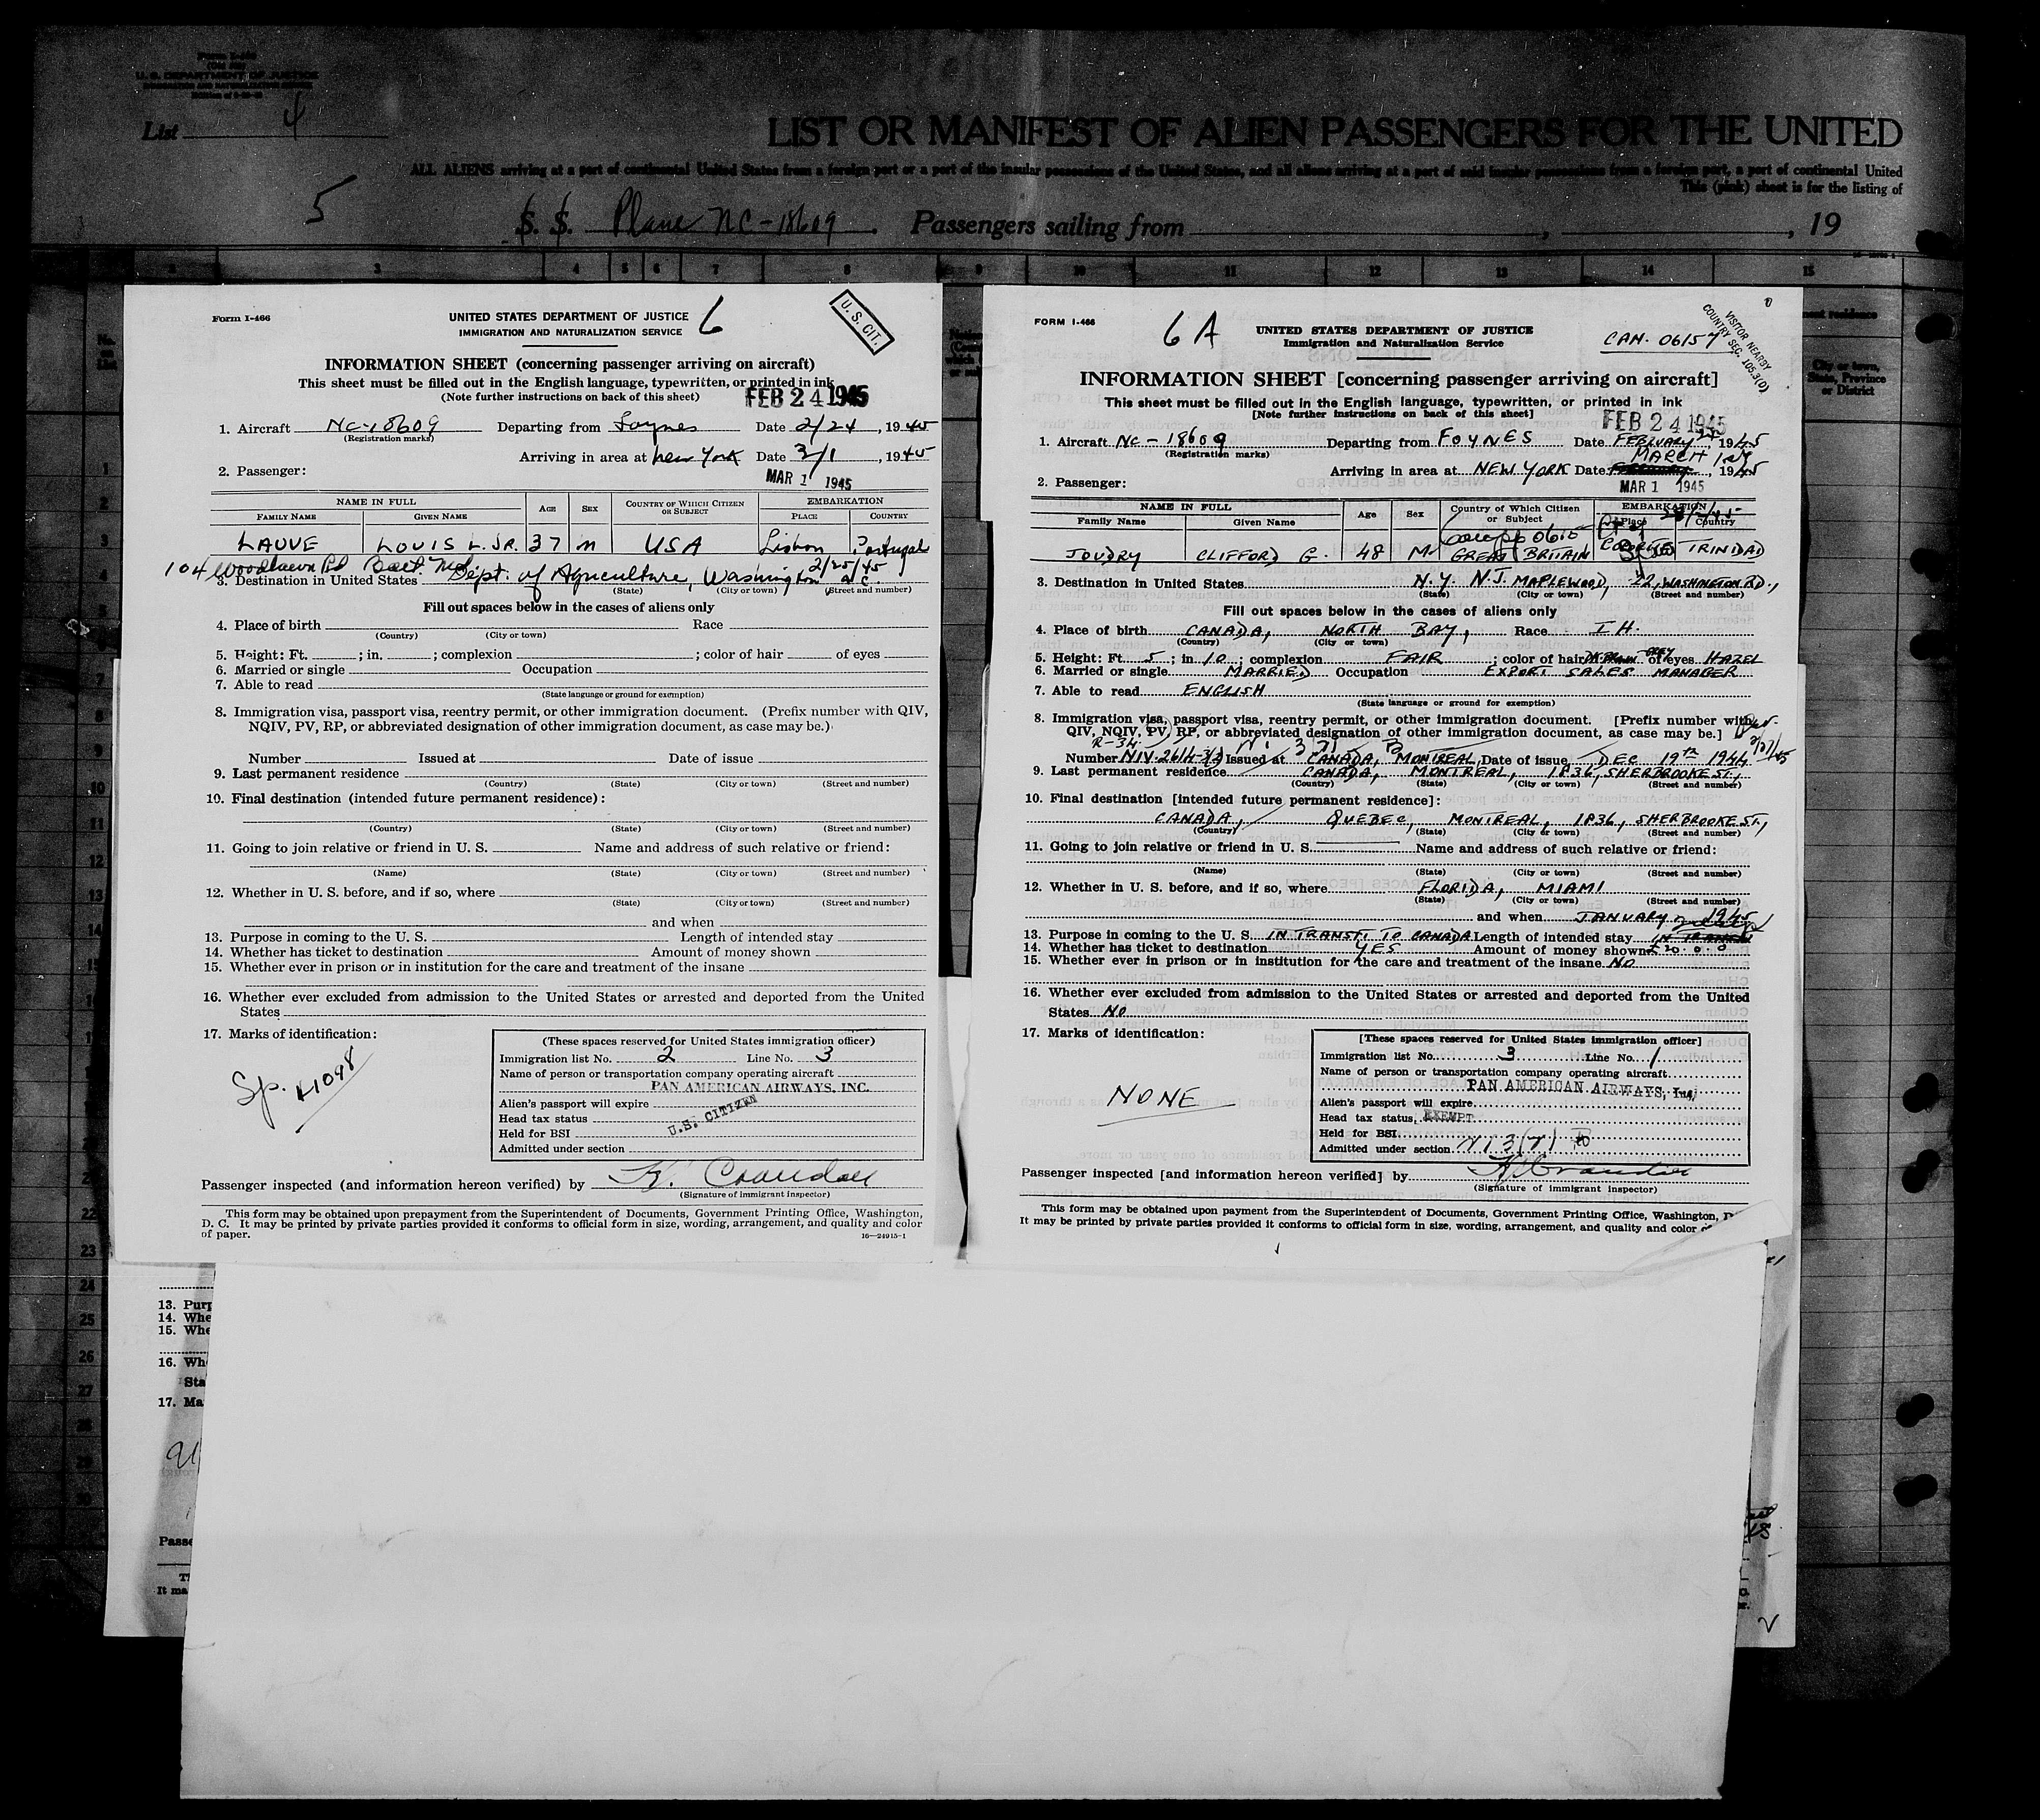 U. S. DEPARTMENT OF JUSTICE
List 4
LIST OR MANIFEST OF ALIEN PASSENGERS FOR THE UNITED
ALL ALIENS arriving at a port of continental United States from a foreign port or a port of the insular possessions of the United States, and all aliens arriving at a port of said insular possessions from a foreign port, a port of continental United
This (pink) sheet is for the listing of
5
S. S. Plane NC-18609. Passengers sailing from , , 19
2 3 4 5 6 7 8 9 10 11 12 13 14 15
Form I-466
UNITED STATES DEPARTMENT OF JUSTICE 6
IMMIGRATION AND NATURALIZATION SERVICE
U. S. CIT.
INFORMATION SHEET (concerning passenger arriving on aircraft)
This sheet must be filled out in the English language, typewritten, or printed in ink
(Note further instructions on back of this sheet)
FEB 24 1945
1. Aircraft NC-18609 Departing from Foynes Date 2/24, 1945
(Registration marks)
Arriving in area at New York Date 3/1, 1945
MAR 1 1945
2. Passenger:
NAME IN FULL AGE SEX COUNTRY OF WHICH CITIZEN OR SUBJECT EMBARKATION
FAMILY NAME GIVEN NAME PLACE COUNTRY
LAUVE LOUIS L. JR. 37 M USA Lisbon Portugal
104 Woodlawn Rd Balt. Md. 2/25/45
3. Destination in United States Dept. of Agriculture, Washington D.C.
(State) (City or town) (Street and number)
Fill out spaces below in the cases of aliens only
4. Place of birth Race
(Country) (City or town)
5. Height: Ft. ; in. ; complexion ; color of hair of eyes
6. Married or single Occupation
7. Able to read
(State language or ground for exemption)
8. Immigration visa, passport visa, reentry permit, or other immigration document. (Prefix number with QIV,
NQIV, PV, RP, or abbreviated designation of other immigration document, as case may be.)
Number Issued at Date of issue
9. Last permanent residence
(Country) (State) (City or town) (Street and number)
10. Final destination (intended future permanent residence):
(Country) (State) (City or town) (Street and number)
11. Going to join relative or friend in U. S. Name and address of such relative or friend:
(Name) (State) (City or town) (Street and number)
12. Whether in U. S. before, and if so, where
(State) (City or town) (Street and number)
and when
13. Purpose in coming to the U. S. Length of intended stay
14. Whether has ticket to destination Amount of money shown
15. Whether ever in prison or in institution for the care and treatment of the insane
16. Whether ever excluded from admission to the United States or arrested and deported from the United
States
17. Marks of identification:
Sp. 41098
(These spaces reserved for United States immigration officer)
Immigration list No. 2 Line No. 3
Name of person or transportation company operating aircraft
PAN AMERICAN AIRWAYS, INC.
Alien's passport will expire
Head tax status U.S. CITIZEN
Held for BSI
Admitted under section
Passenger inspected (and information hereon verified) by K. Crandall
(Signature of immigrant inspector)
This form may be obtained upon prepayment from the Superintendent of Documents, Government Printing Office, Washington,
D. C. It may be printed by private parties provided it conforms to official form in size, wording, arrangement, and quality and color
of paper.
16—24915-1
FORM I-466
6A
UNITED STATES DEPARTMENT OF JUSTICE
Immigration and Naturalization Service
CAN. 06157
VISITOR NEARBY
COUNTRY SEC. 105.3(D)
INFORMATION SHEET [concerning passenger arriving on aircraft]
This sheet must be filled out in the English language, typewritten, or printed in ink
[Note further instructions on back of this sheet]
FEB 24 1945
1. Aircraft NC-18609 Departing from FOYNES Date FEBRUARY 24 1945
(Registration marks)
MARCH 1st
Arriving in area at NEW YORK Date , 1945
MAR 1 1945
2. Passenger:
NAME IN FULL Age Sex Country of Which Citizen or Subject EMBARKATION
Family Name Given Name Place Country
JOUDRY CLIFFORD G. 48 M GREAT BRITAIN TRINIDAD
3. Destination in United States N.Y. N.J. MAPLEWOOD, 22, WASHINGTON RD.,
(State) (City or town) (Street and number)
Fill out spaces below in the cases of aliens only
4. Place of birth CANADA, NORTH BAY, Race I H.
(Country) (City or town)
5. Height: Ft 5; in 10; complexion FAIR; color of hair GREY of eyes HAZEL
6. Married or single MARRIED Occupation EXPORT SALES MANAGER
7. Able to read ENGLISH
(State language or ground for exemption)
8. Immigration visa, passport visa, reentry permit, or other immigration document. [Prefix number with
QIV, NQIV, PV, RP, or abbreviated designation of other immigration document, as case may be.]
Number Issued at CANADA, MONTREAL, Date of issue DEC 19th 1944
9. Last permanent residence CANADA, MONTREAL, 1836, SHERBROOKE ST.,
(Country) (State) (City or town) (Street and number)
10. Final destination [intended future permanent residence]:
CANADA, QUEBEC, MONTREAL, 1836, SHERBROOKE ST.,
(Country) (State) (City or town) (Street and number)
11. Going to join relative or friend in U. S. Name and address of such relative or friend:
(Name) (State) (City or town) (Street and number)
12. Whether in U. S. before, and if so, where FLORIDA, MIAMI
(State) (City or town) (Street and number)
and when JANUARY 1945
13. Purpose in coming to the U. S. IN TRANSIT TO CANADA Length of intended stay
14. Whether has ticket to destination YES Amount of money shown £20.0.0
15. Whether ever in prison or in institution for the care and treatment of the insane NO
16. Whether ever excluded from admission to the United States or arrested and deported from the United
States NO
17. Marks of identification:
NONE
[These spaces reserved for United States immigration officer]
Immigration list No. 3 Line No. 1
Name of person or transportation company operating aircraft
PAN AMERICAN AIRWAYS, Inc.
Alien's passport will expire
Head tax status EXEMPT
Held for BSI
Admitted under section
Passenger inspected [and information hereon verified] by K Crandall
(Signature of immigrant inspector)
This form may be obtained upon payment from the Superintendent of Documents, Government Printing Office, Washington,
It may be printed by private parties provided it conforms to official form in size, wording, arrangement, and quality and color
13. Purp
14. Whe
15. Whe
16. Wh
Sta
17. Ma
Passe
It ma